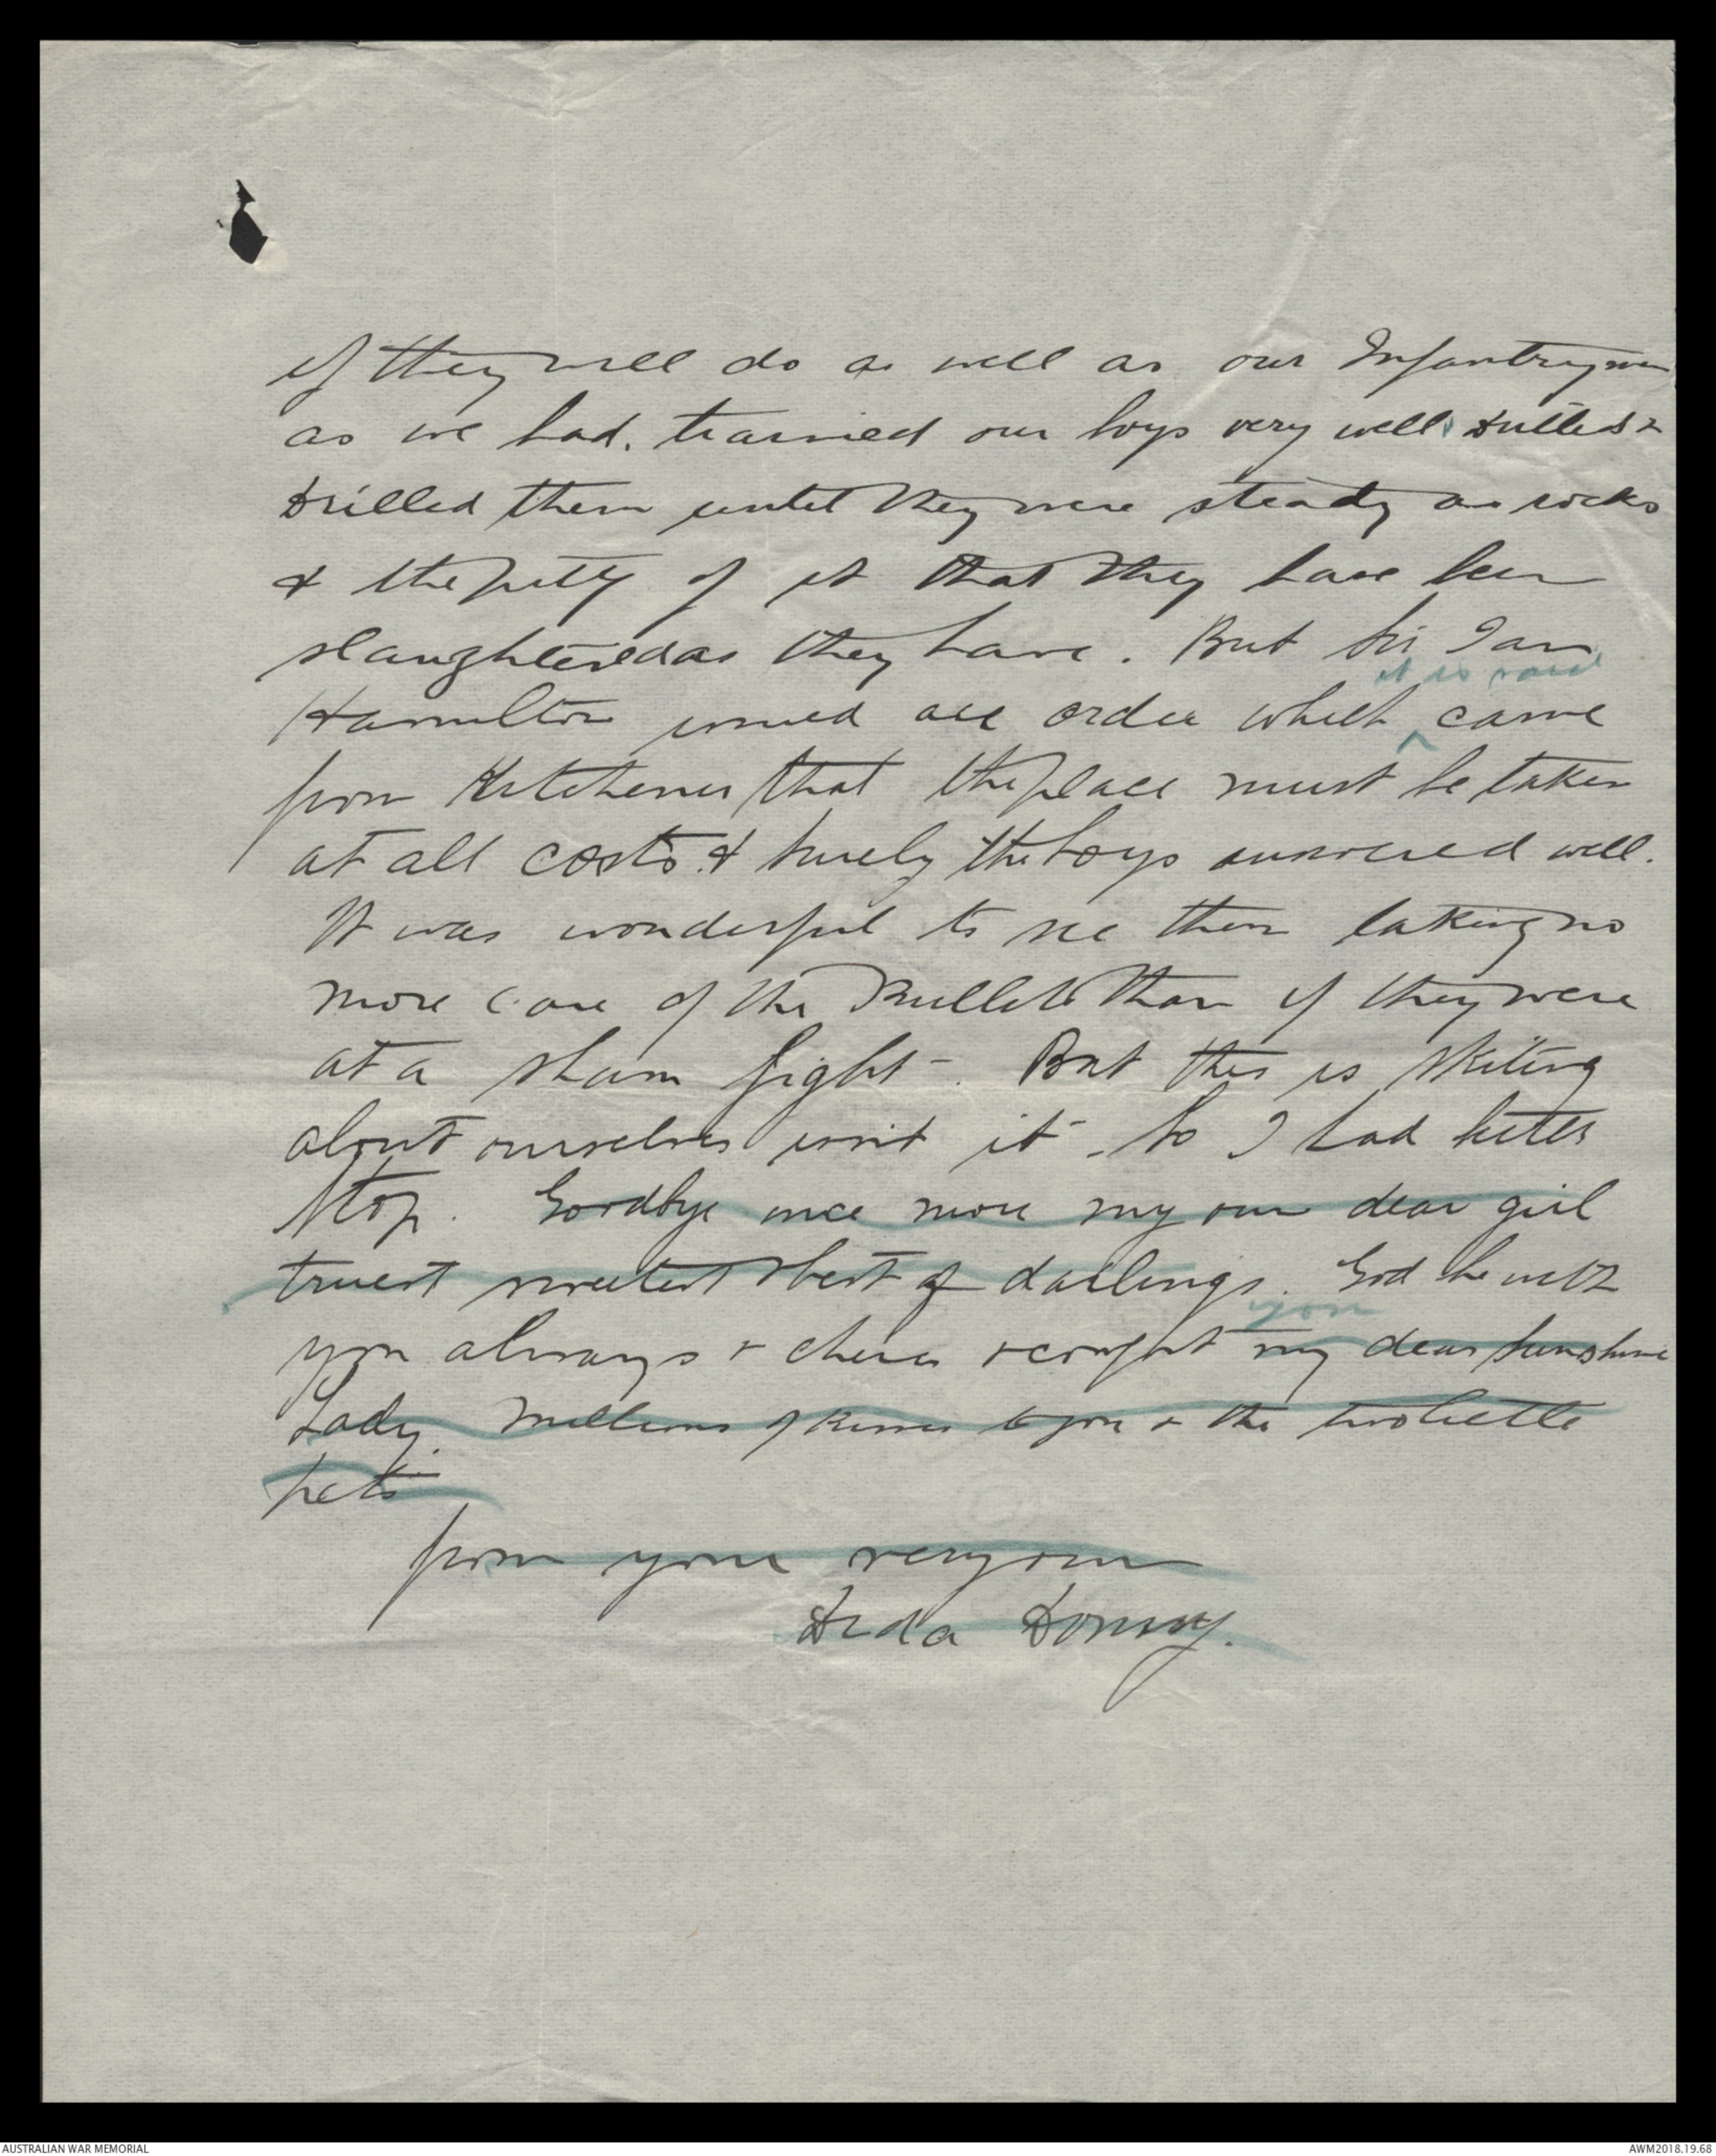 if they will do as well as our Infantrymen
as we had. trained our boys very well, drilled &
drilled them until they were steady as rocks
& the pity of it that they have been
slaughtered as they have. But Sir Ian
it is said
Hamilton issued an order which ^ came
from Kitchener that the place must be taken
at all costs. & surely the boys answered well.
It was wonderful to see them taking no
more care of the Bullets than if they were
at a sham fight -. But this is skiting
about ourselves isn't it -. So I had better
stop. Goodbye once more my own dear girl
truest sweetest & best of darlings. God be with
you
you always & cheer & comfort my dear sunshine
Lady. Millions of kisses to you & the two little
pets
from your very own
Dida Donny.
AUSTRALIAN WAR MEMORIAL
AWM2018.19.68